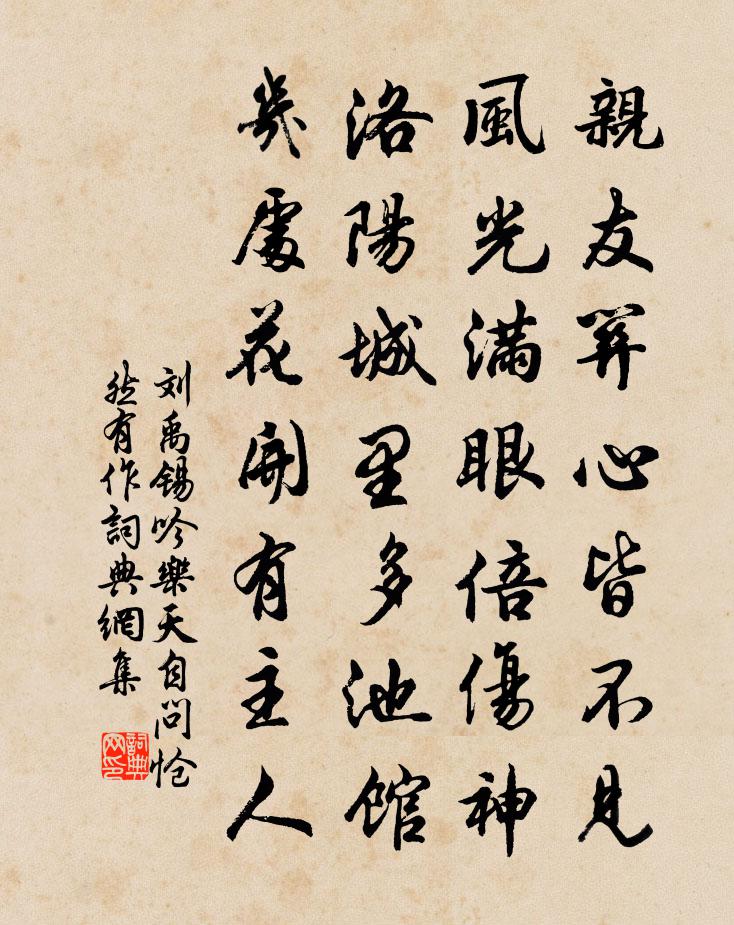 親友關心皆不見
風光滿眼倍傷神
洛陽城里多池館
幾處花開有主人
刘禹锡吟樂天自问怆
然有作詞典網集
詞典网印